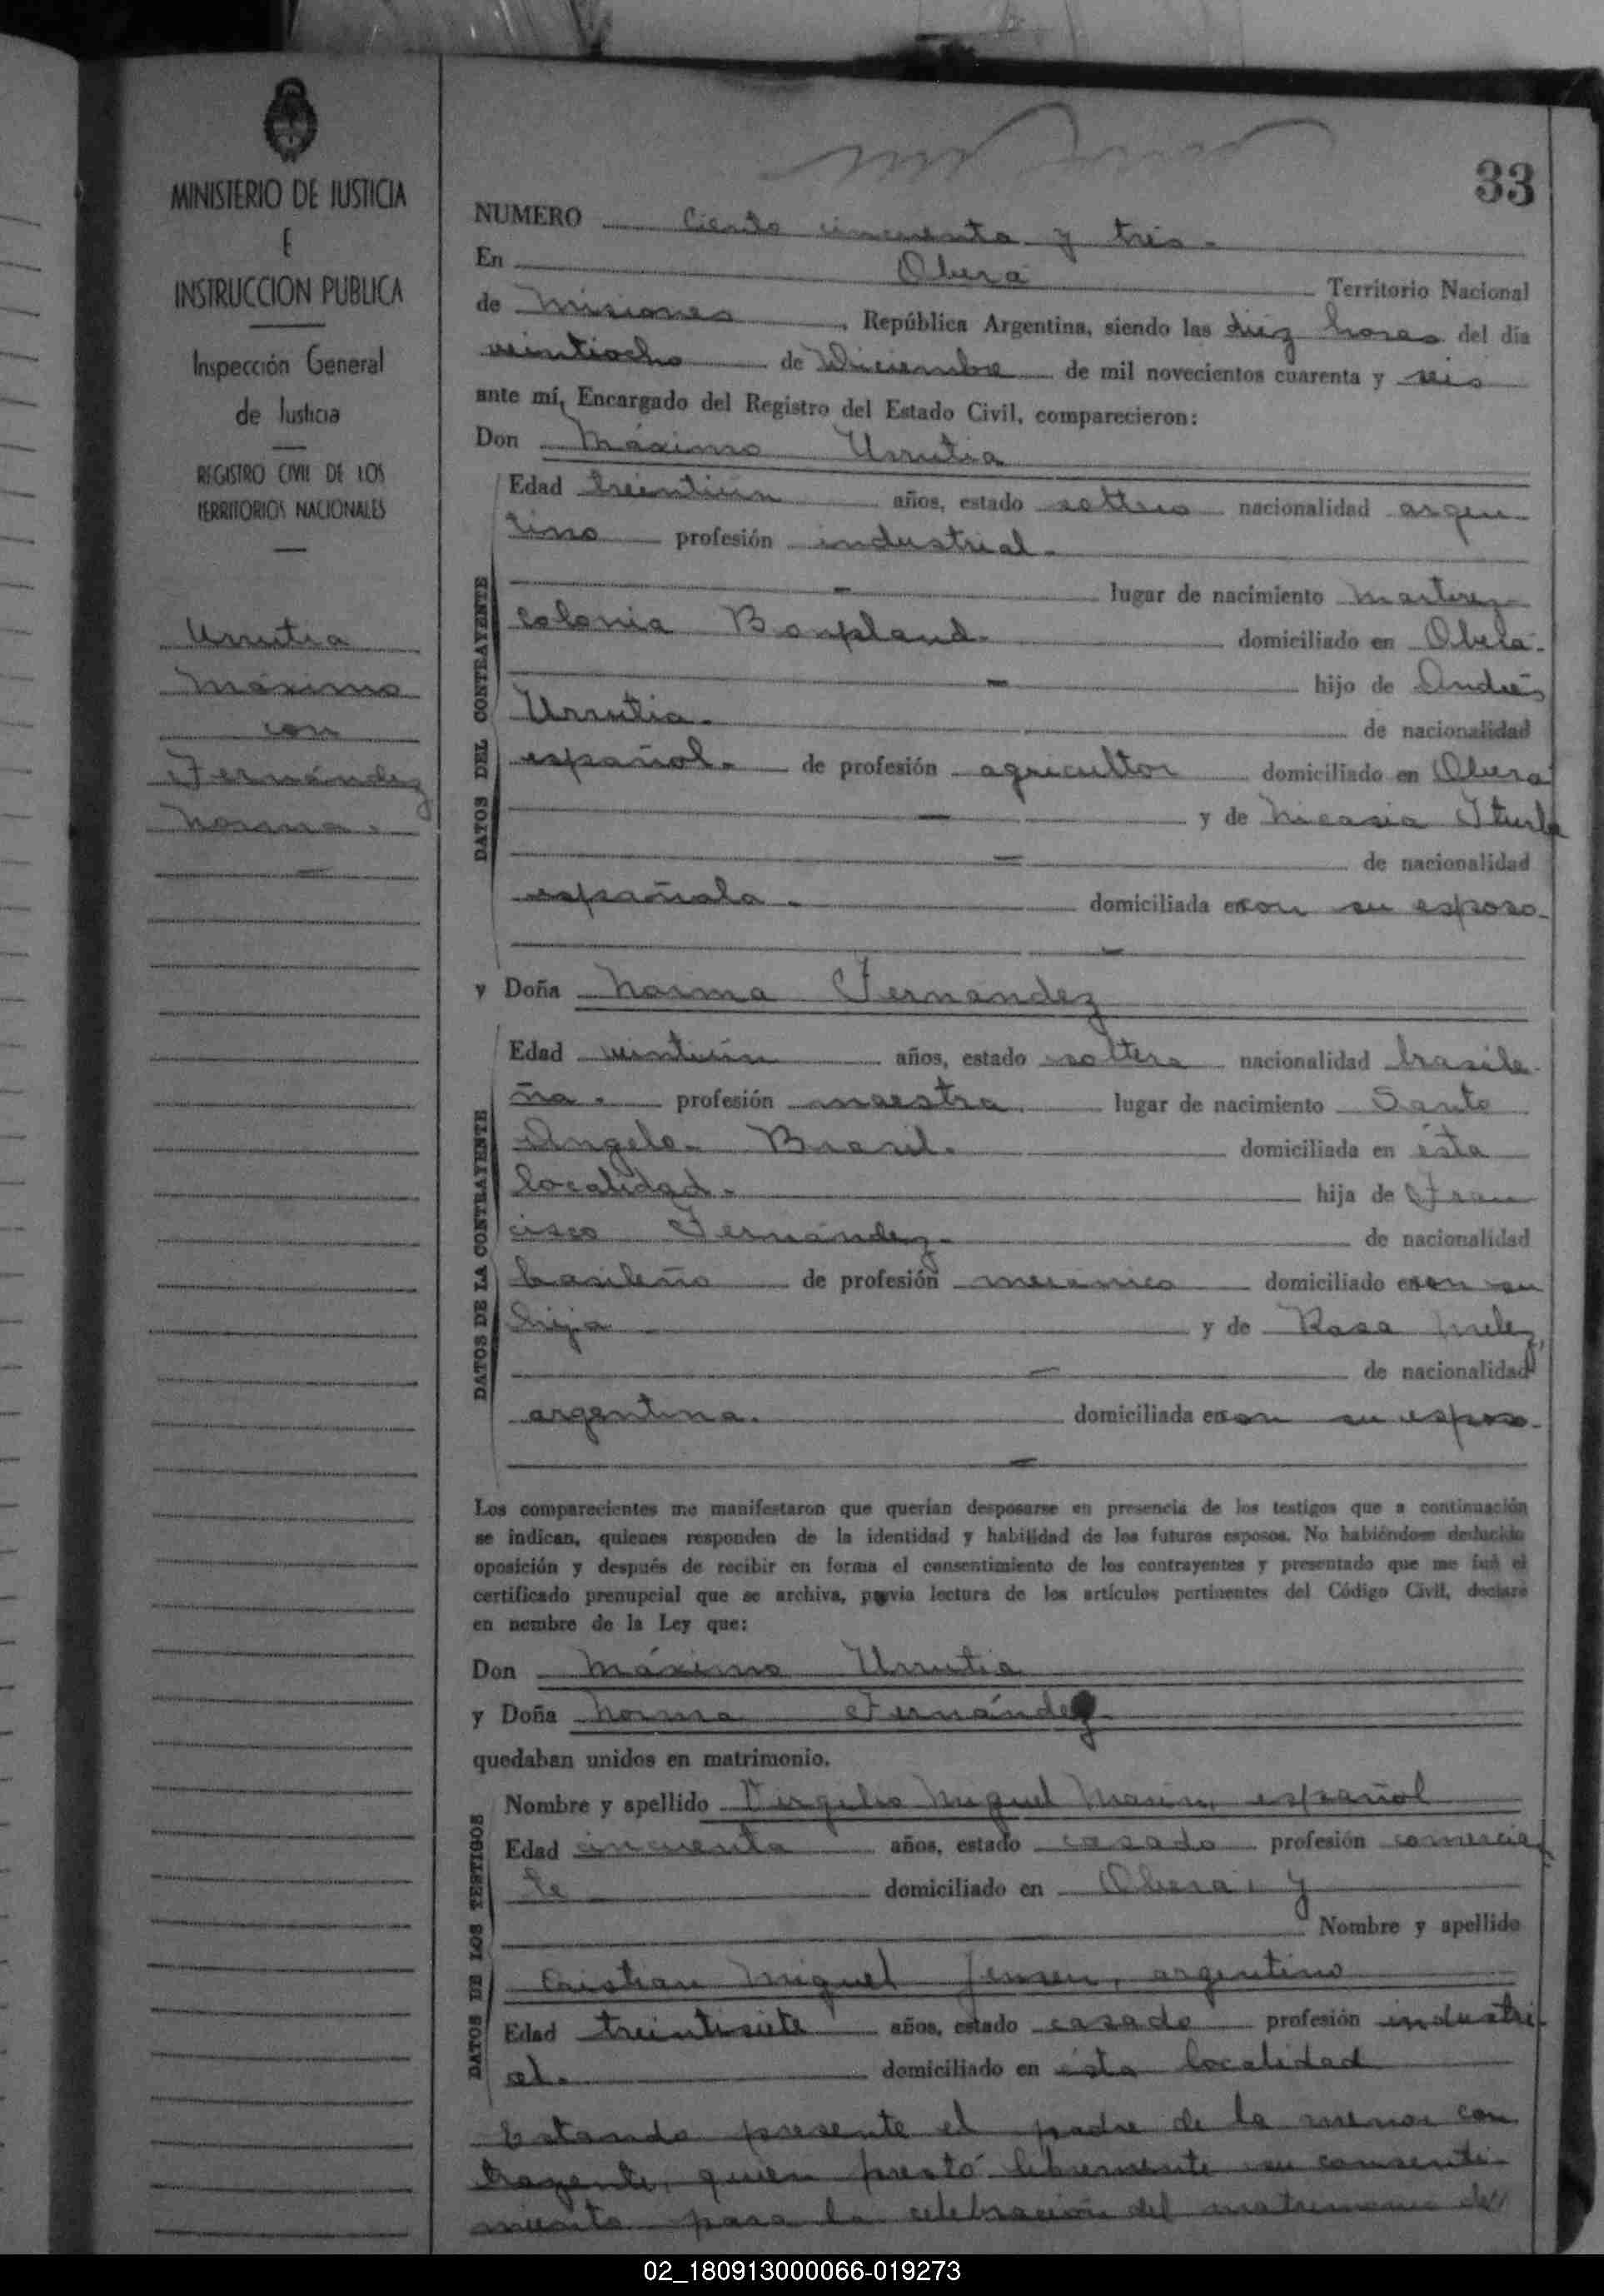 MINISTERIO DE JUSTICIA
E
INSTRUCCION PUBLICA
Inspección General
de Justicia
REGISTRO CIVIL DE LOS
TERRITORIOS NACIONALES
Urrutia
Máximo
con
Fernández
Norma.
33
NUMERO Ciento cincuenta y tres.
En Oberá Territorio Nacional
de Misiones, República Argentina, siendo las diez horas del día
veintiocho de Diciembre de mil novecientos cuarenta y seis
ante mí, Encargado del Registro del Estado Civil, comparecieron:
Don Máximo Urrutia
DATOS DEL CONTRAYENTE
Edad treintiun años, estado soltero nacionalidad argen
tino profesión industrial.
- lugar de nacimiento Martirez
colonia Bonpland. domiciliado en Oberá.
- hijo de Andrés
Urrutia. de nacionalidad
español. de profesión agricultor domiciliado en Oberá
- y de Nicasia
- de nacionalidad
española. domiciliada en con su esposo.
-
y Doña Norma Fernandez
DATOS DE LA CONTRAYENTE
Edad veintiún años, estado soltera nacionalidad brasile
ña. profesión maestra lugar de nacimiento Santo
Angelo. Brasil. domiciliada en ésta
localidad. hija de Fran
cisco Fernández. de nacionalidad
brasileño de profesión mecánico domiciliado en con su
hija y de Rosa
- de nacionalidad
argentina. domiciliada en con su esposo.
-
Los comparecientes me manifestaron que querían desposarse en presencia de los testigos que a continuación
se indican, quienes responden de la identidad y habilidad de los futuros esposos. No habiéndose deducido
oposición y después de recibir en forma el consentimiento de los contrayentes y presentado que me fué el
certificado prenupcial que se archiva, previa lectura de los artículos pertinentes del Código Civil, declaré
en nombre de la Ley que:
Don Máximo Urrutia
y Doña Norma Fernández
quedaban unidos en matrimonio.
DATOS DE LOS TESTIGOS
Nombre y apellido Virgilio Miguel español
Edad cincuenta años, estado casado profesión comercian
te domiciliado en Oberá; y
Nombre y apellido
Cristian Miguel Jensen, argentino
Edad treintisiete años, estado casado profesión industri-
al. domiciliado en ésta localidad
Estando presente el padre de la menor con
trayente, quien prestó libremente su consenti-
miento para la celebración del matrimonio de
02_180913000066-019273